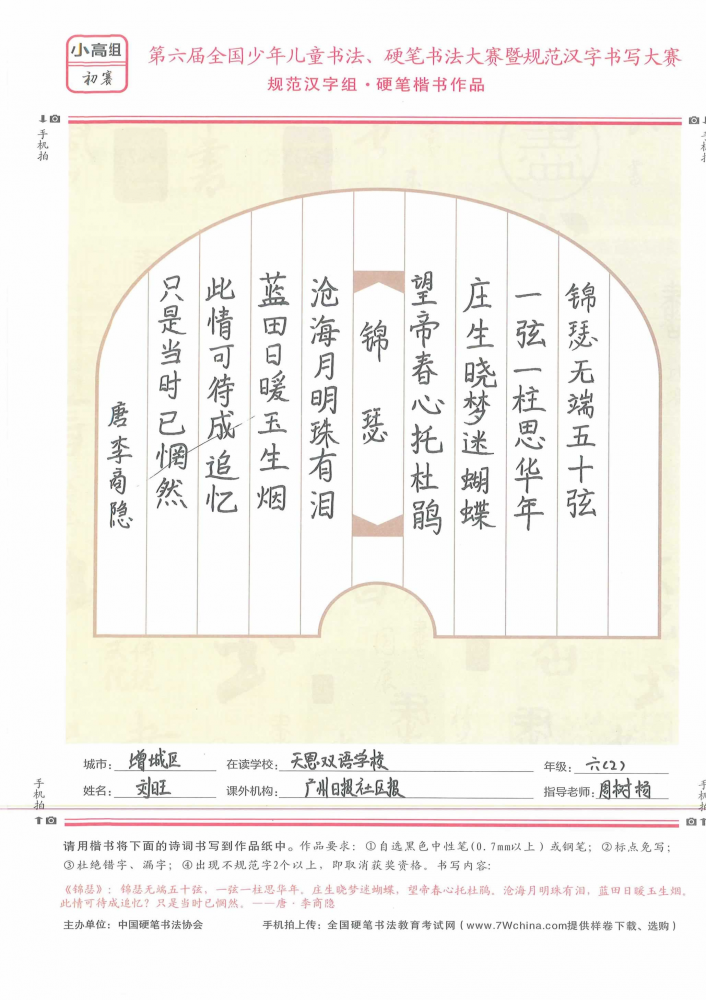 小高组
初赛
第六届全国少年儿童书法、硬笔书法大赛暨规范汉字书写大赛
规范汉字组·硬笔楷书作品
手机拍
锦瑟无端五十弦
一弦一柱思华年
庄生晓梦迷蝴蝶
望帝春心托杜鹃
锦瑟
沧海月明珠有泪
蓝田日暖玉生烟
此情可待成追忆
只是当时已惘然
唐李商隐
城市：增城区 在读学校：天思双语学校 年级：六(2)
姓名：刘旺 课外机构：广州日报社区报 指导老师：周树杨
手机拍
请用楷书将下面的诗词书写到作品纸中。作品要求：①自选黑色中性笔(0.7mm以上)或钢笔；②标点免写；
③杜绝错字、漏字；④出现不规范字2个以上，即取消获奖资格。书写内容：
《锦瑟》：锦瑟无端五十弦，一弦一柱思华年。庄生晓梦迷蝴蝶，望帝春心托杜鹃。沧海月明珠有泪，蓝田日暖玉生烟。
此情可待成追忆？只是当时已惘然。——唐·李商隐
主办单位：中国硬笔书法协会 手机拍上传：全国硬笔书法教育考试网（www.7Wchina.com提供样卷下载、选购）